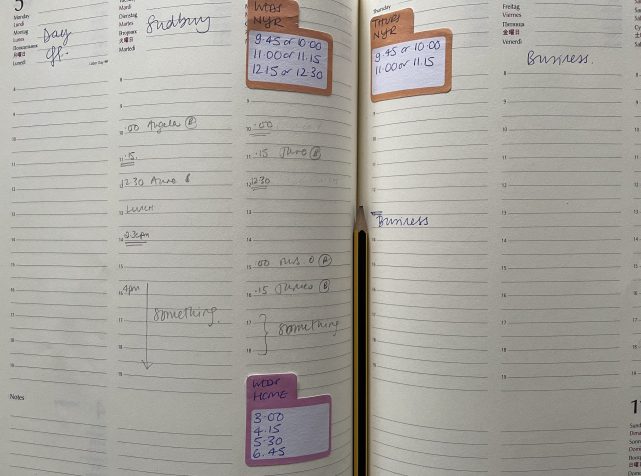 5
Monday
Lundi
Montag
Lunes
Понедельник
月曜日
Lunedì
Day
Off.
Labor Day
Tuesday
Mardi
Dienstag
Martes
Вторник
火曜日
Martedì
Sudbury
10
.00 Angela (B)
11
.15
12.30 Anne
13
LUNCH
14
2.30pm
15
16
4pm
Something
17
18
19
WEDS
NYR
9.45 or 10.00
11.00 or 11.15
12.15 or 12.30
10
.00
11
.15 June (B)
12
12.30
13
14
15
.00 Mrs O (A)
16
.15 James (B)
17
Something
18
WEDS
HOME
3.00
4.15
5.30
6.45
Thursday
THURS
NYR
9.45 or 10.00
11.00 or 11.15
Business
Friday
Freitag
Viernes
Пятница
金曜日
Venerdì
Business.
Notes
11